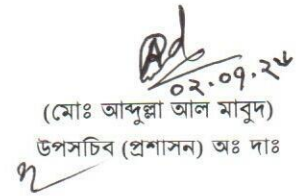 ০২.০৭.২৫
(মোঃ আব্দুল্লা আল মাবুদ)
উপসচিব (প্রশাসন) অঃ দাঃ